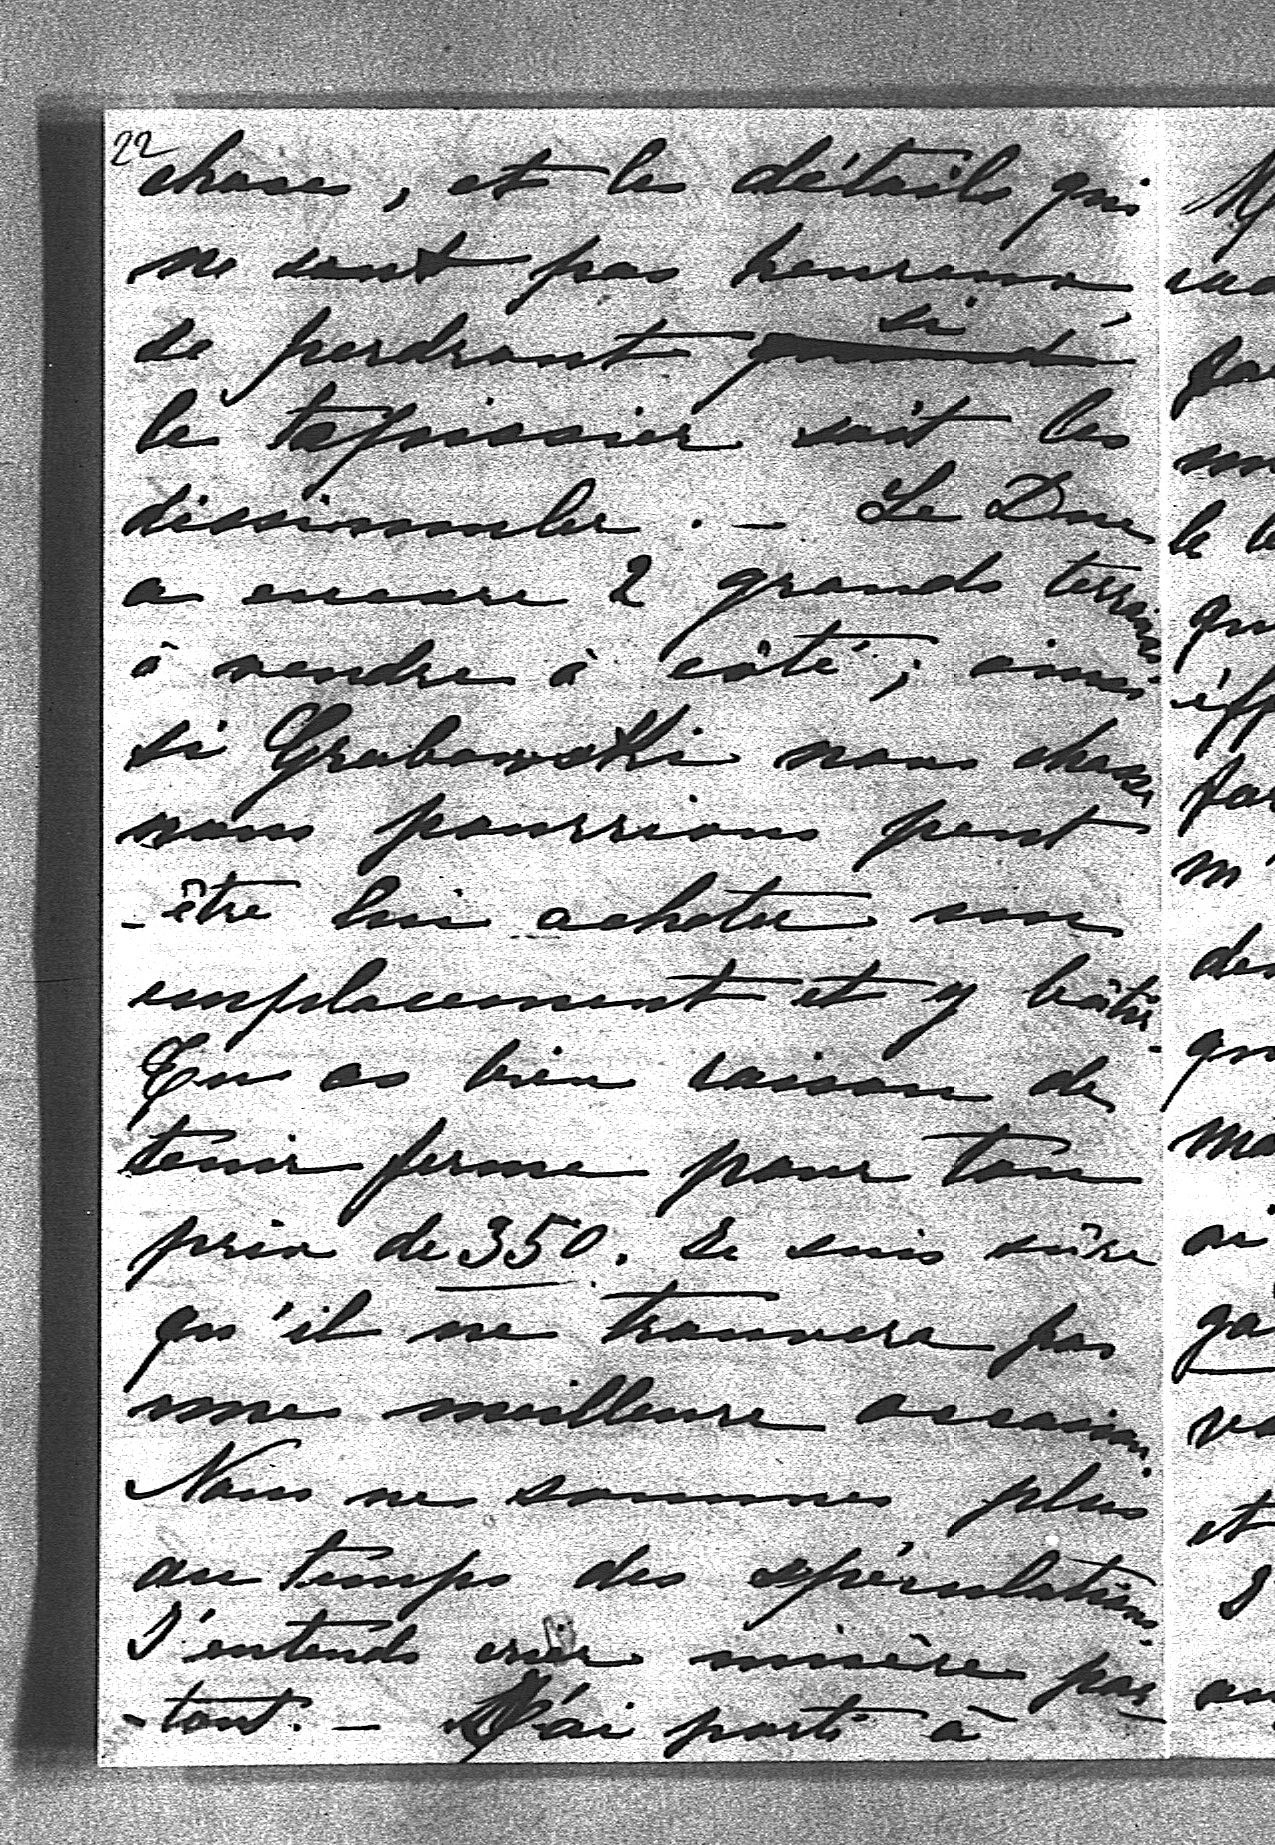 22
choses, et les détails qui
ne sont pas heureux
se perdront si
le tapissier sait les
dissimuler. - Le Duc
a encore 2 grands terrains
à vendre à côté; ainsi
si Grabowski nous chasse
nous pourrions peut
-être lui acheter un
emplacement et y bâtir.
Tu as bien raison de
tenir ferme pour ton
prix de 350. Je suis sûre
qu'il ne trouvera pas
une meilleure occasion.
Nous ne sommes plus
au temps des spéculations
J'entends crier misère par
-tout. - J'ai porté à